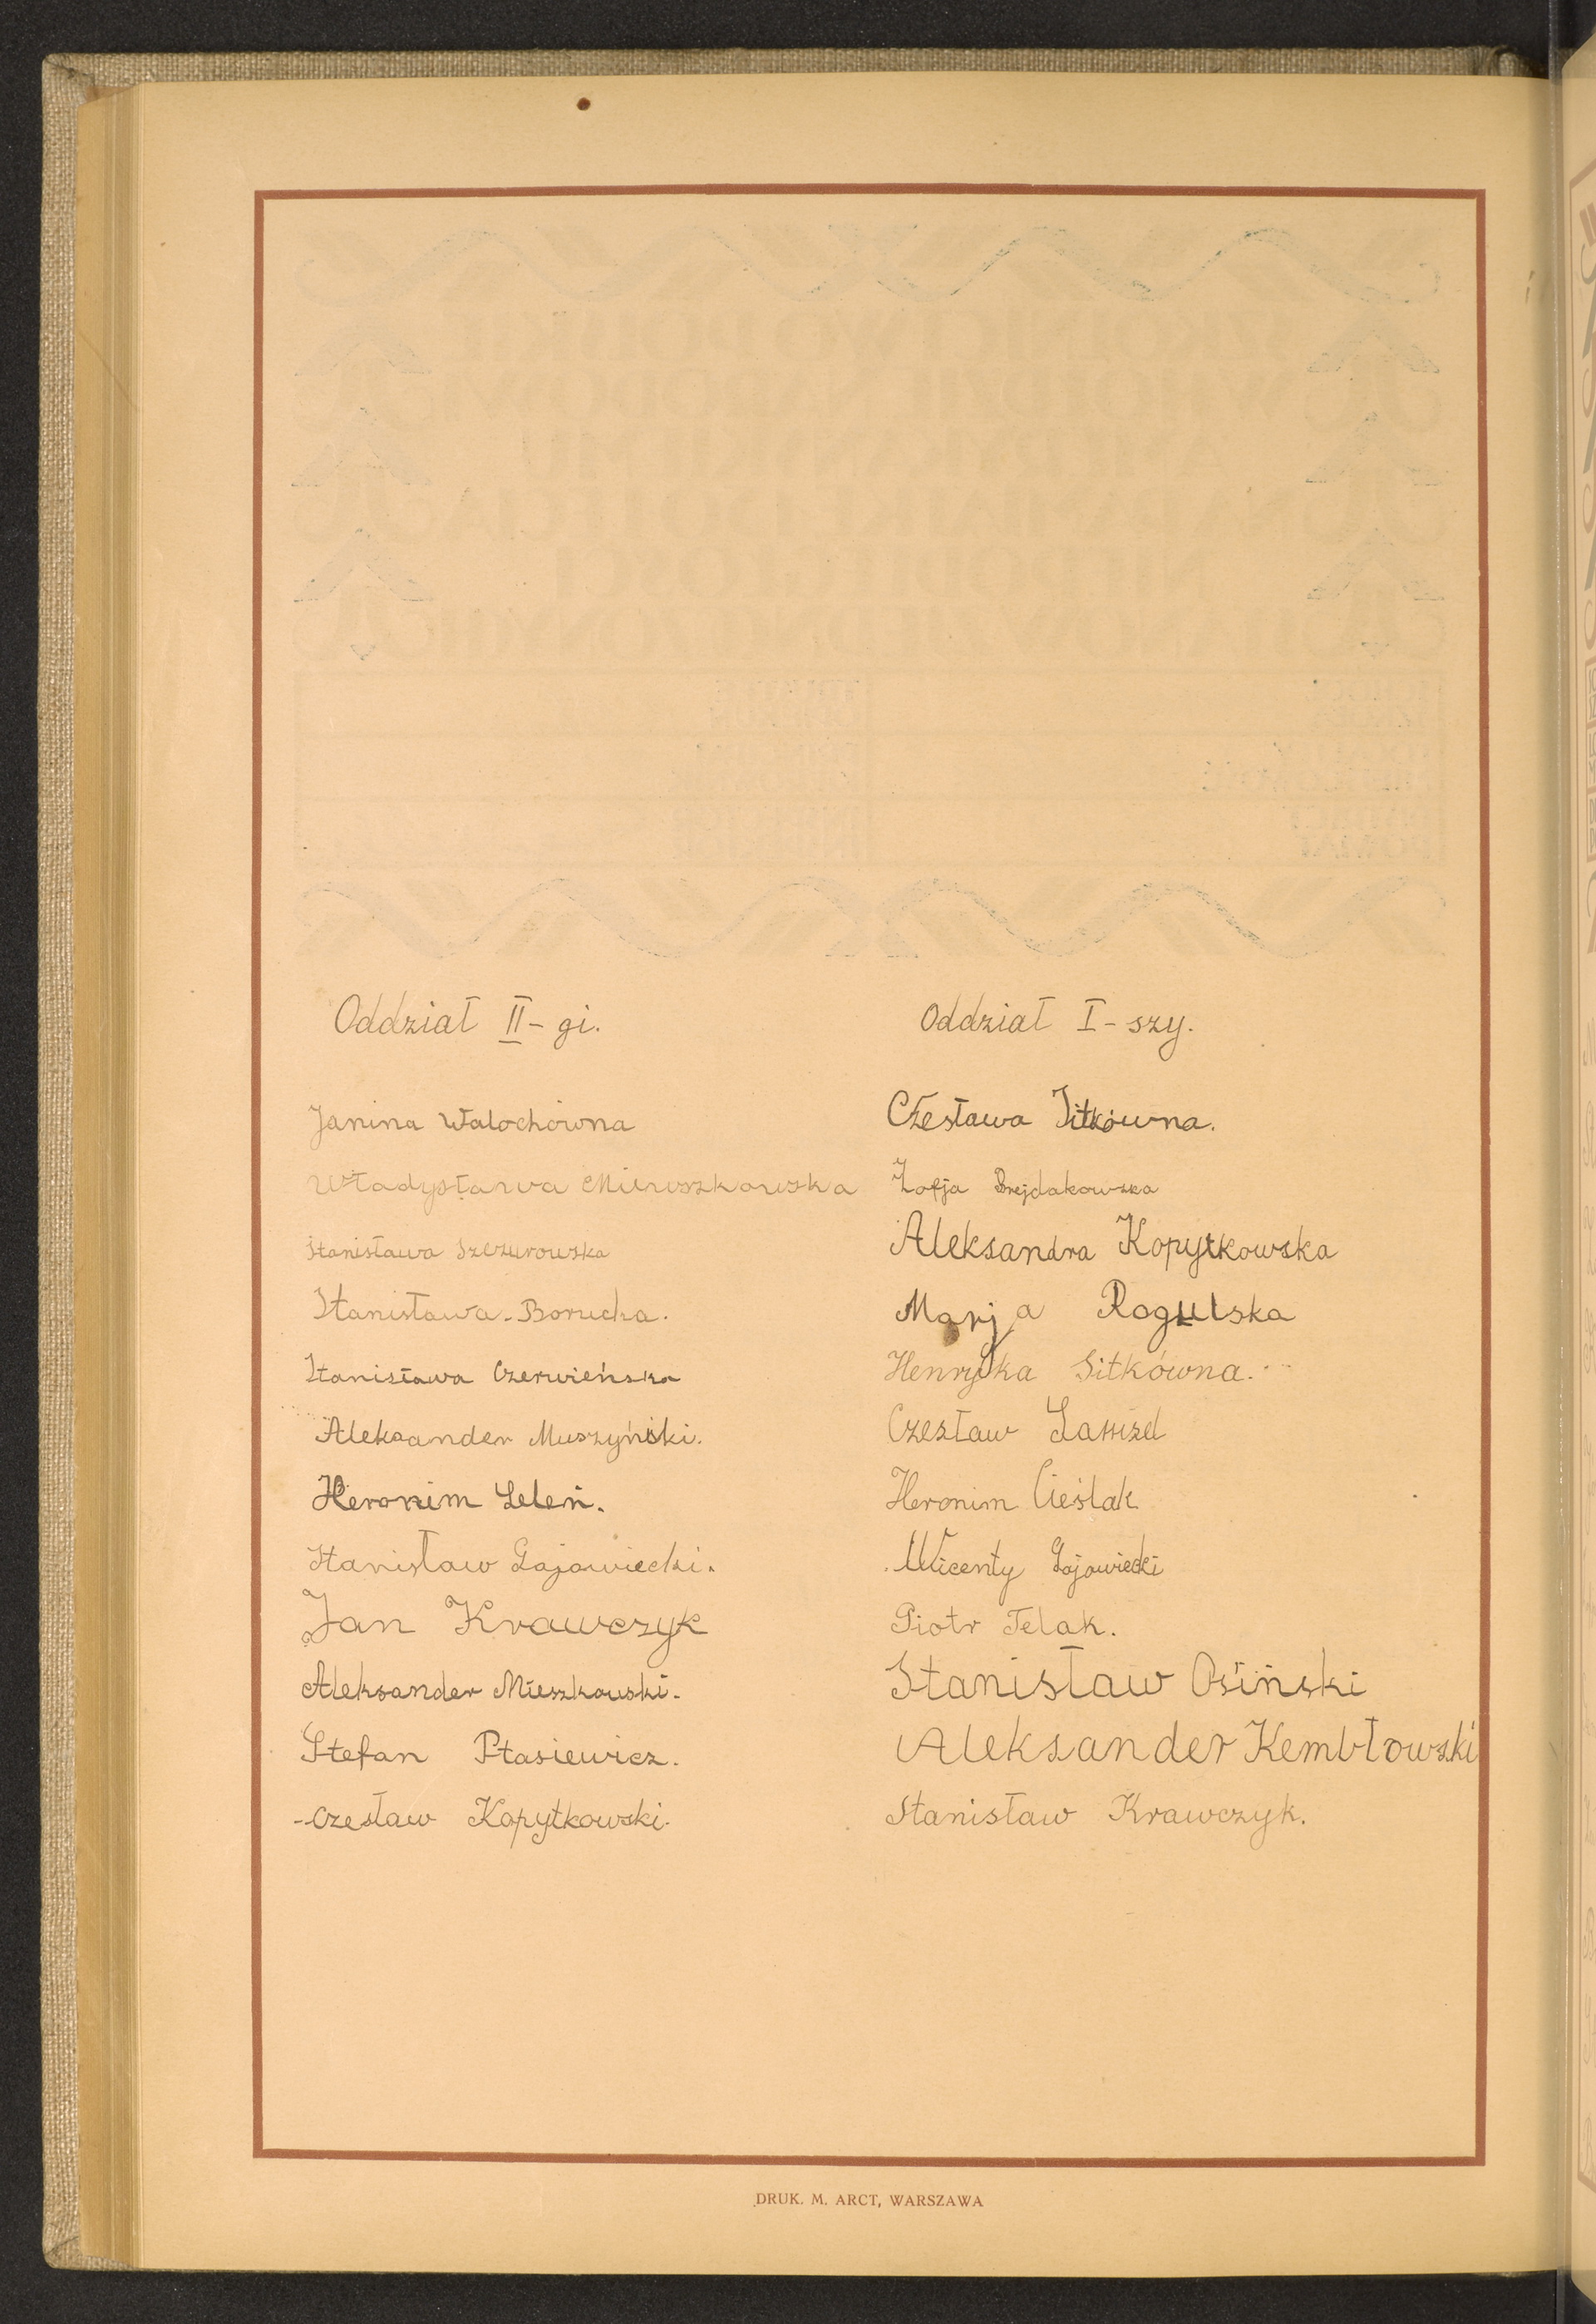 Oddział II-gi.
Janina Walochówna
Władysława Mieruszkowska
Stanisława Szczurowska
Stanisława Borucka.
Stanisława Czerwieńska
Aleksander Muszyński.
Heronim Leleń.
Stanisław Gajowiecki.
Jan Krawczyk
Aleksander Mieszkowski.
Stefan Ptasiewicz.
Czesław Kopytkowski.
Oddział I-szy.
Czesława Sitkówna.
Zofja Brejdakowska
Aleksandra Kopytkowska
Marja Rogulska
Henryka Sitkówna.
Czesław
Heronim Cieślak
Wicenty Gajowiecki
Piotr Telak.
Stanisław Osiński
Aleksander Kembłowski
Stanisław Krawczyk.
DRUK. M. ARCT, WARSZAWA